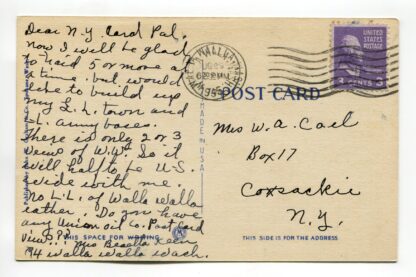 Dear N.Y. Card Pal,
Now I will be glad
to raid 5 or more at
a time. but would
like to build up
my L.L. town and
L. army bases.
There is only 2 or 3
views of W.W. So it
will half to be U.S.
wide with me.
No L.L. of Walla Walla
either. Do you have
any Union oil Co. Post card
views?
Mrs
Walla Walla Wash.
WALLA WALLA
POST CARD
MADE IN USA
THIS SPACE FOR WRITING
UNITED STATES
POSTAGE
3 CENTS 3
Mrs W. A. Cael
Box 17
Coxsackie
N.Y.
THIS SIDE IS FOR THE ADDRESS